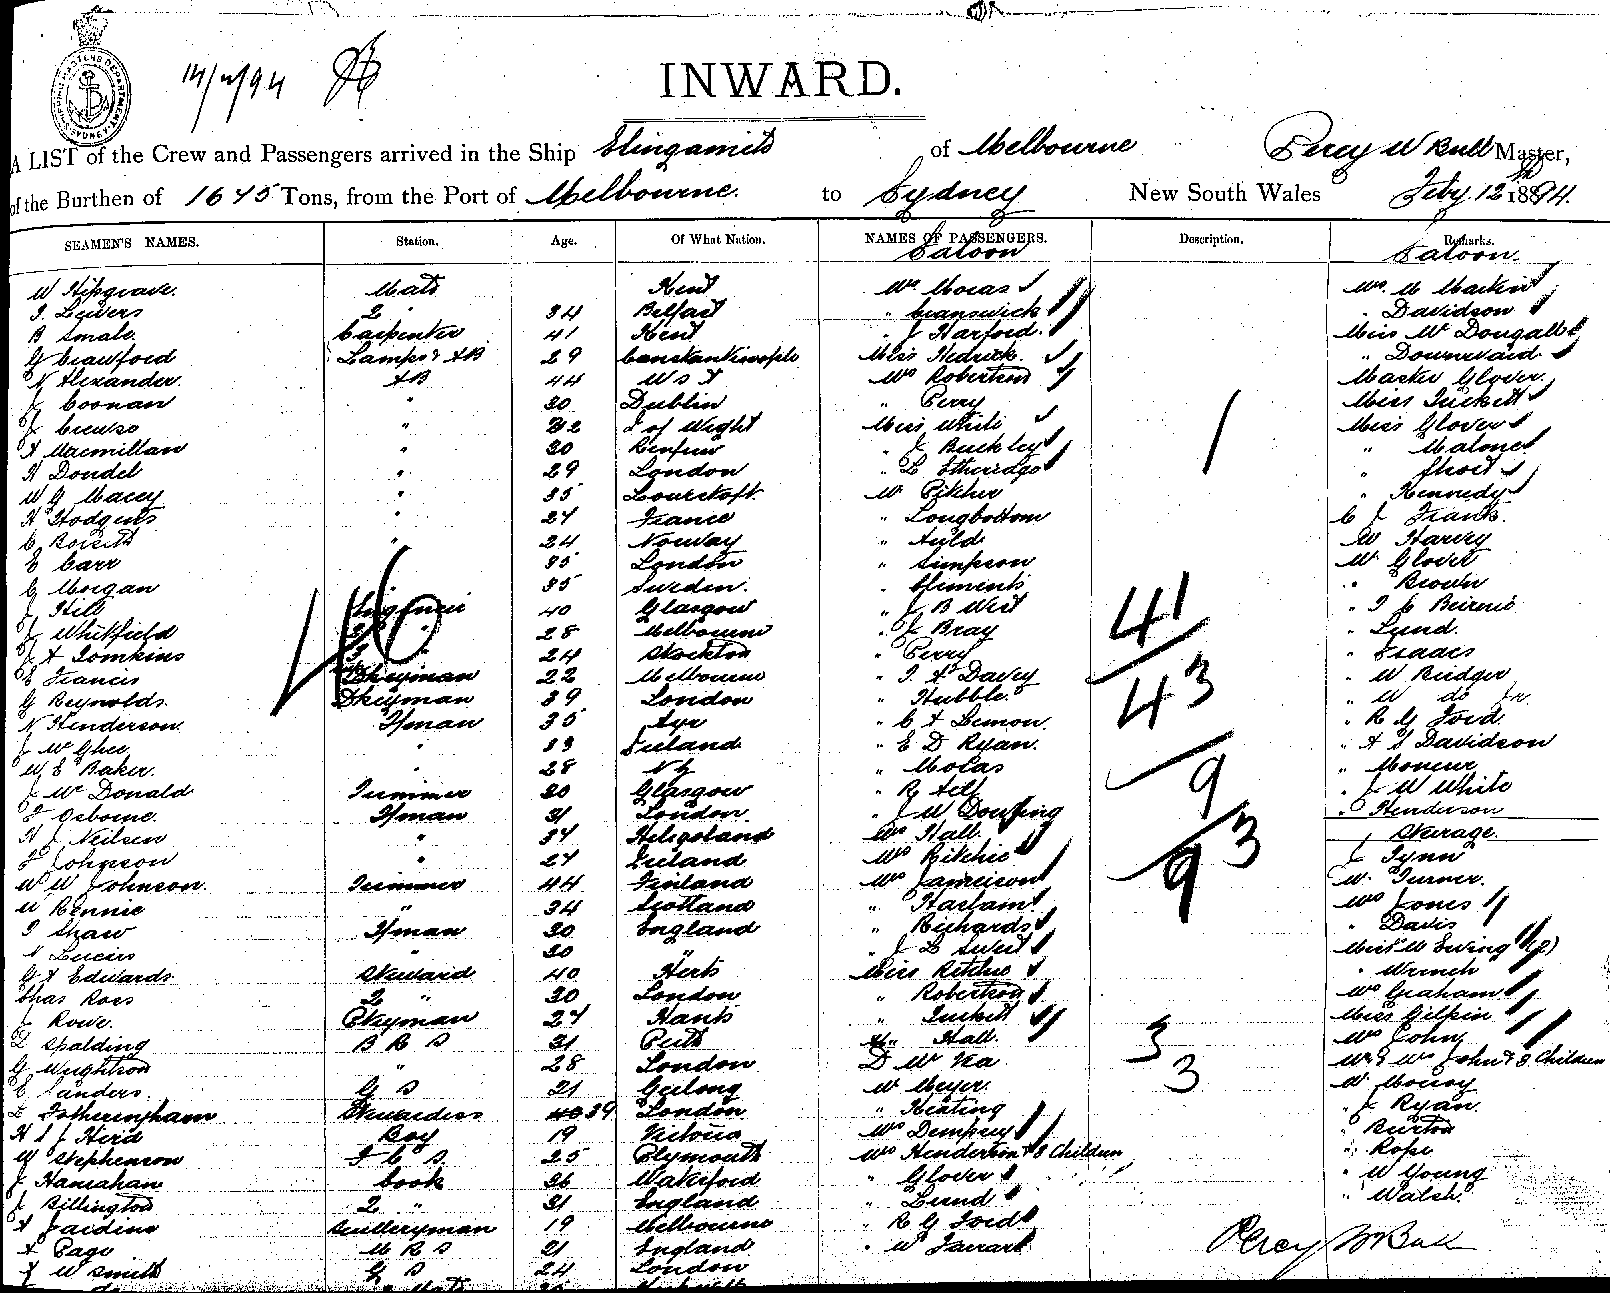 14/2/94
INWARD.
A LIST of the Crew and Passengers arrived in the Ship Elingamite of Melbourne Percy W Bull Master,
of the Burthen of 1675 Tons, from the Port of Melbourne. to Sydney New South Wales Feby. 12th 1894.
SEAMEN'S NAMES. Station. Age. Of What Nation. NAMES OF PASSENGERS. Description. Remarks.
Saloon Saloon.
W Hipgrave. Mate Kent Mrs Mocas Mrs. M Mackin
2 " 34 Belfast " Cranswick " Davidson
B Smale. Carpenter 41 Kent " J Harford. Miss McDougall
G Crawford Lamps & AB 29 Constantinople Miss Hedrick. " Downward
N Alexander. AB 44 U S A Mrs Robertson Master Glover.
J Coonan " 30 Dublin " Perry Miss Tuckett
J " 32 I of Wight Miss White Miss Glover
A Macmillan " 30 Renfrew " J Buckley " Malone
H Doudel " 29 London " L Etheridge " Short
W G Macey " 35 Lowestoft Mr Pilcher " Kennedy
H Hodgetts " 27 France " Longbottom C J Frank.
C " 24 Norway " Auld W Harvey
E Carr 35 London " Simpson Mr Glover
G Morgan 35 Sweden. " Climents " Brown
J Hill Engineer 40 Glasgow " J B West 41 " T C Beirne
J Whitfield 2 " 28 Melbourne " J Bray " Lund.
J A Tomkins 3 " 24 Stockton " Perry " Isaacs
E Francis 22 Melbourne " T A Davey " W Bridger
G Reynolds. 39 London " Hubble. 43 " W do Jr.
N Henderson. Fman 35 Ayr " C A Lemon. " R G Ford.
J McGhee " 33 Ireland " E D Ryan. " A S Davidson
W E Baker. " 28 N Z " Mocas 9 " Moncur
J McDonald Trimmer 30 Glasgow " R " J W White
F Osborne. Fman 31 London. " J W Dowling " Henderson
H J Neilsen " 34 Heligoland Mrs Hall. 93 Steerage.
F Johnson " 27 Ireland Mrs Ritchie J Lynn
W W Johnson. Trimmer 44 Finland Mrs Jameison Mr Turner.
W Rennie " 34 Scotland " Haslam Mrs Jones
T Shaw Fman 30 England " Richards " Davis
" 30 " " J L Miss M Ewing (2)
G A Edwards Steward 40 Herts Miss Ritchie " Wrench
Chas Ross 2 " 30 London " Robertson Mrs Graham
J Rowe. Pkyman 27 Hants " Tuckett Miss Gilpin
D Spalding B R S 31 Perth " Hall. 3 Mrs John
G Wrightson " 28 London D W Mr & Mrs John & 3 Children
E Sanders. G S 21 Geelong Mr Meyer. 3 Mr
L Fotheringham Stewardess 39 London " Keating " J Ryan.
H S J Heird Boy 19 Victoria Mrs Dempsey " Burton
W Stephenson F C S 25 Plymouth Mrs Henderson & 3 Children " Rope
J Hanrahan Cook 36 " Glover " W Young
J Billington 2 " 31 England " Lund " Walsh.
A Jardine Sculleryman 19 Melbourne " R G Ford
A Page M R S 21 England " W Farrar
J W Smith G S 24 London
Percy W Bull